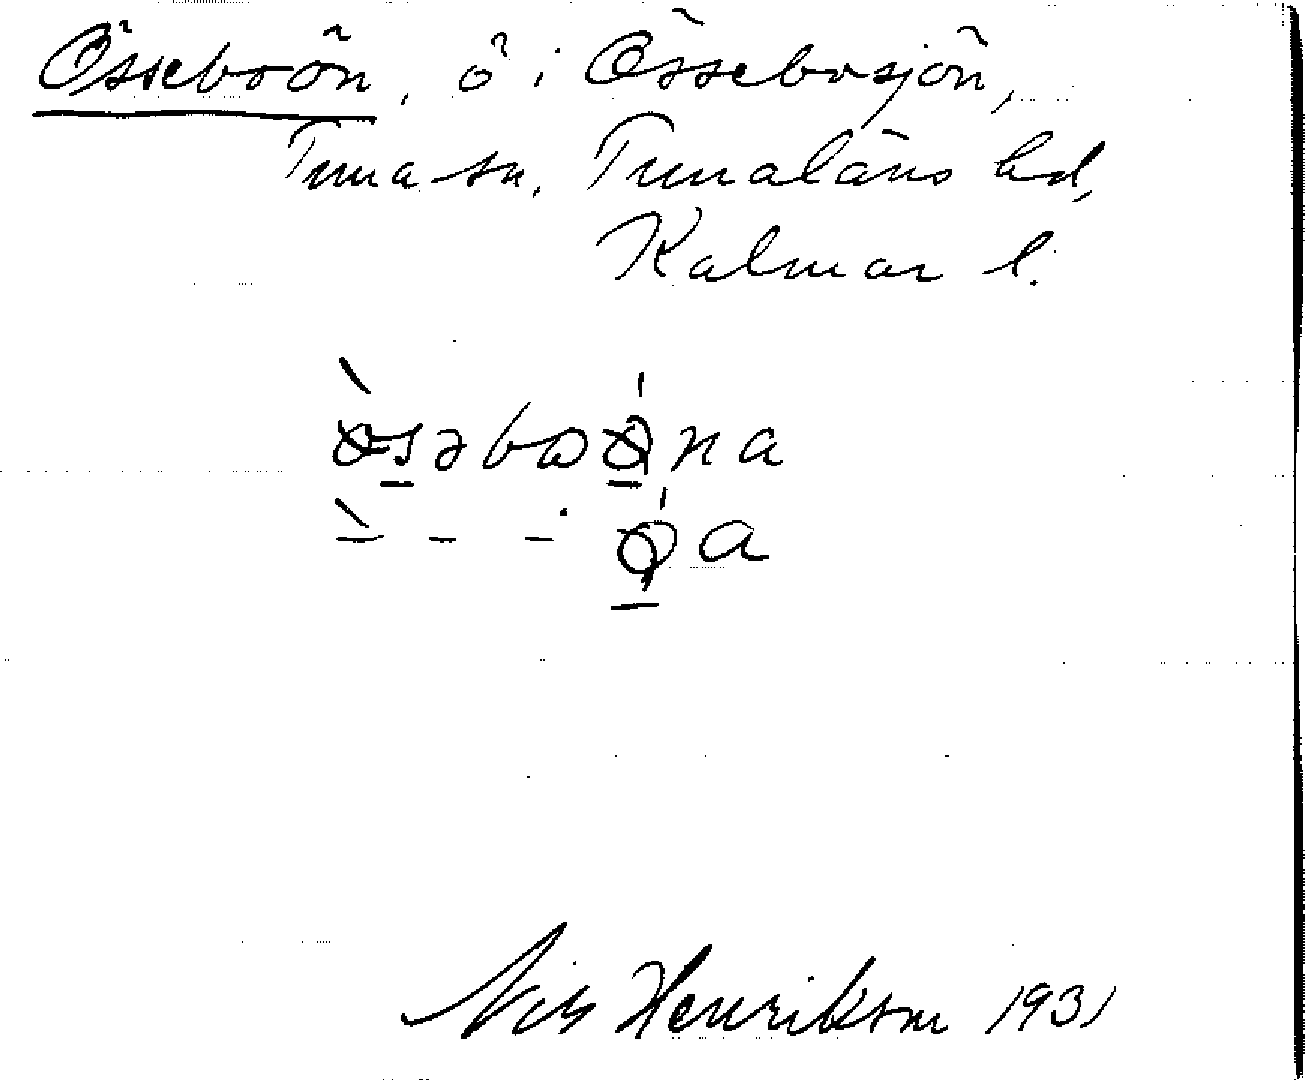 Össeboön, ö i Össebosjön,
Tuna sn, Tunaläns hd,
Kalmar l.
Nils Henrikson 1931